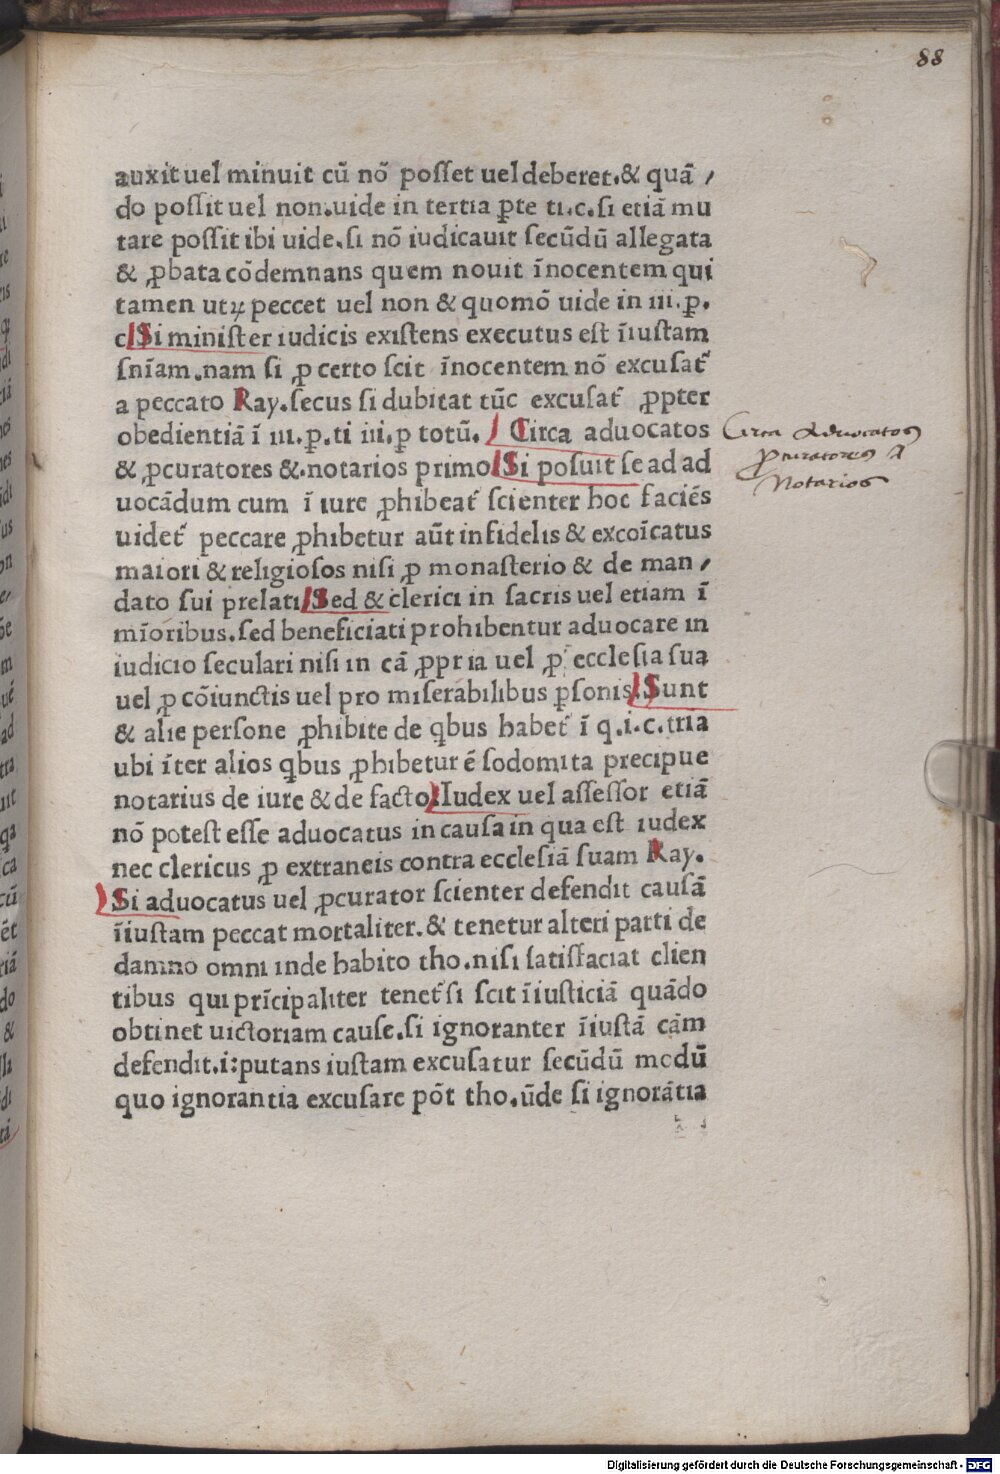 88
auxit uel minuit cū nō posset uel deberet.& quā /
do possit uel non.uide in tertia ꝑte ti.c.si etiā mu
tare possit ibi uide.si nō iudicauit secūdū allegata
& ꝓbata cōdemnans quem nouit īnocentem qui
tamen utꝝ peccet uel non & quomō uide in iii.p.
c. Si minister iudicis existens executus est īiustam
snīam.nam si ꝓ certo scit īnocentem nō excusat᷑
a peccato Ray.secus si dubitat tūc excusat᷑ ꝓpter
obedientiā ī iii.p.ti iii.p totū. Circa aduocatos
& ꝓcuratores & notarios primo. Si posuit se ad ad
uocādum cum ī iure ꝓhibeat᷑ scienter hoc faciēs
uidet᷑ peccare ꝓhibetur aūt infidelis & excoīcatus
maiori & religiosos nisi ꝓ monasterio & de man /
dato sui prelati. Sed & clerici in sacris uel etiam ī
mīoribus.sed beneficiati prohibentur aduocare in
iudicio seculari nisi in cā ꝓpria uel ꝓ ecclesia sua
uel ꝓ cōiunctis uel pro miserabilibus ꝑsonis. Sunt
& alie persone ꝓhibite de qbus habet᷑ ī q.i.c.tria
ubi īter alios qbus ꝓhibetur ē sodomita precipue
notarius de iure & de facto. Iudex uel assessor etiā
nō potest esse aduocatus in causa in qua est iudex
nec clericus ꝓ extraneis contra ecclesiā suam Ray.
Si aduocatus uel ꝓcurator scienter defendit causā
īiustam peccat mortaliter.& tenetur alteri parti de
damno omni inde habito tho.nisi satisfaciat clien
tibus qui prīcipaliter tenet᷑ si scit īiusticiā quādo
obtinet uictoriam cause.si ignoranter īiustā cām
defendit.i:putans iustam excusatur secūdū modū
quo ignorantia excusare pōt tho.ūde si ignorātia
Circa aduocatos
ꝓcuratores &
Notarios
Digitalisierung gefördert durch die Deutsche Forschungsgemeinschaft - DFG